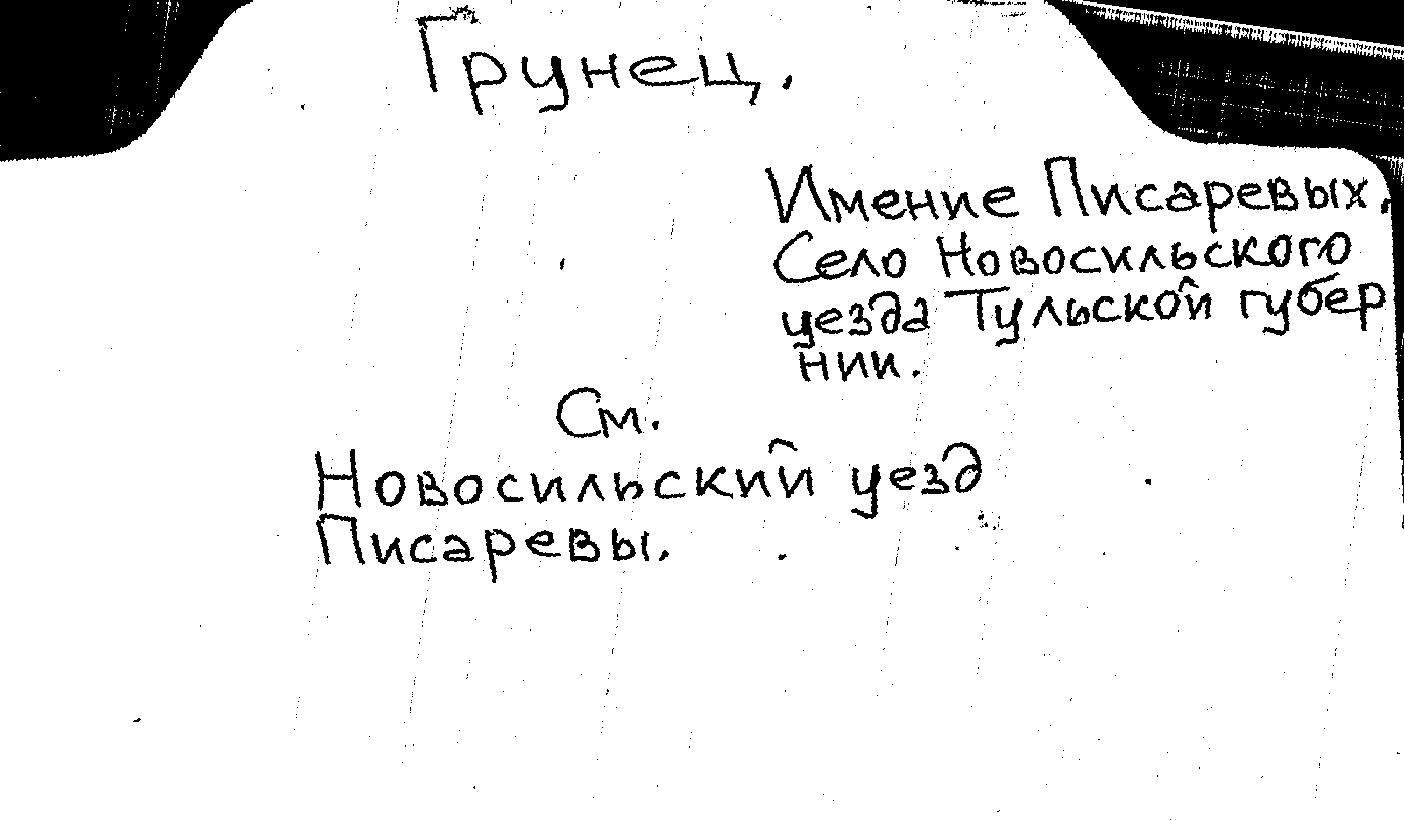 Грунец.
Имение Писаревых.
Село Новосильского
уезда Тульской губер
нии.
См.
Новосильский уезд
Писаревы.